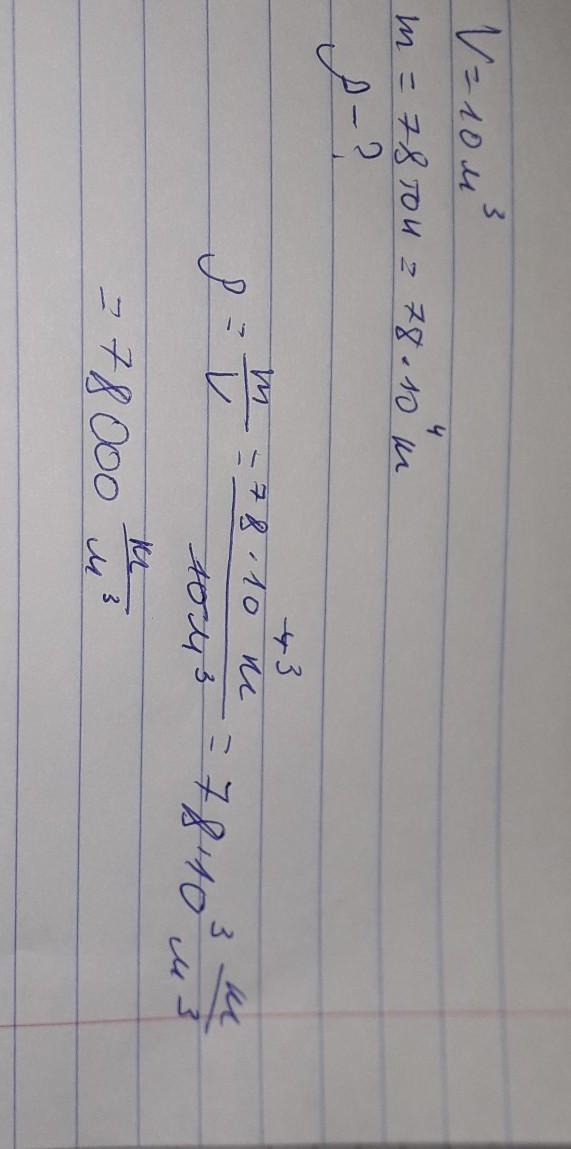 V = 10 м³
m = 78 тон = 78 · 10⁴ м
ρ - ?
ρ = m/V = 78 · 10⁴ ³ м / 10 м³ = 78 · 10³ м/м³
= 78000 м/м³